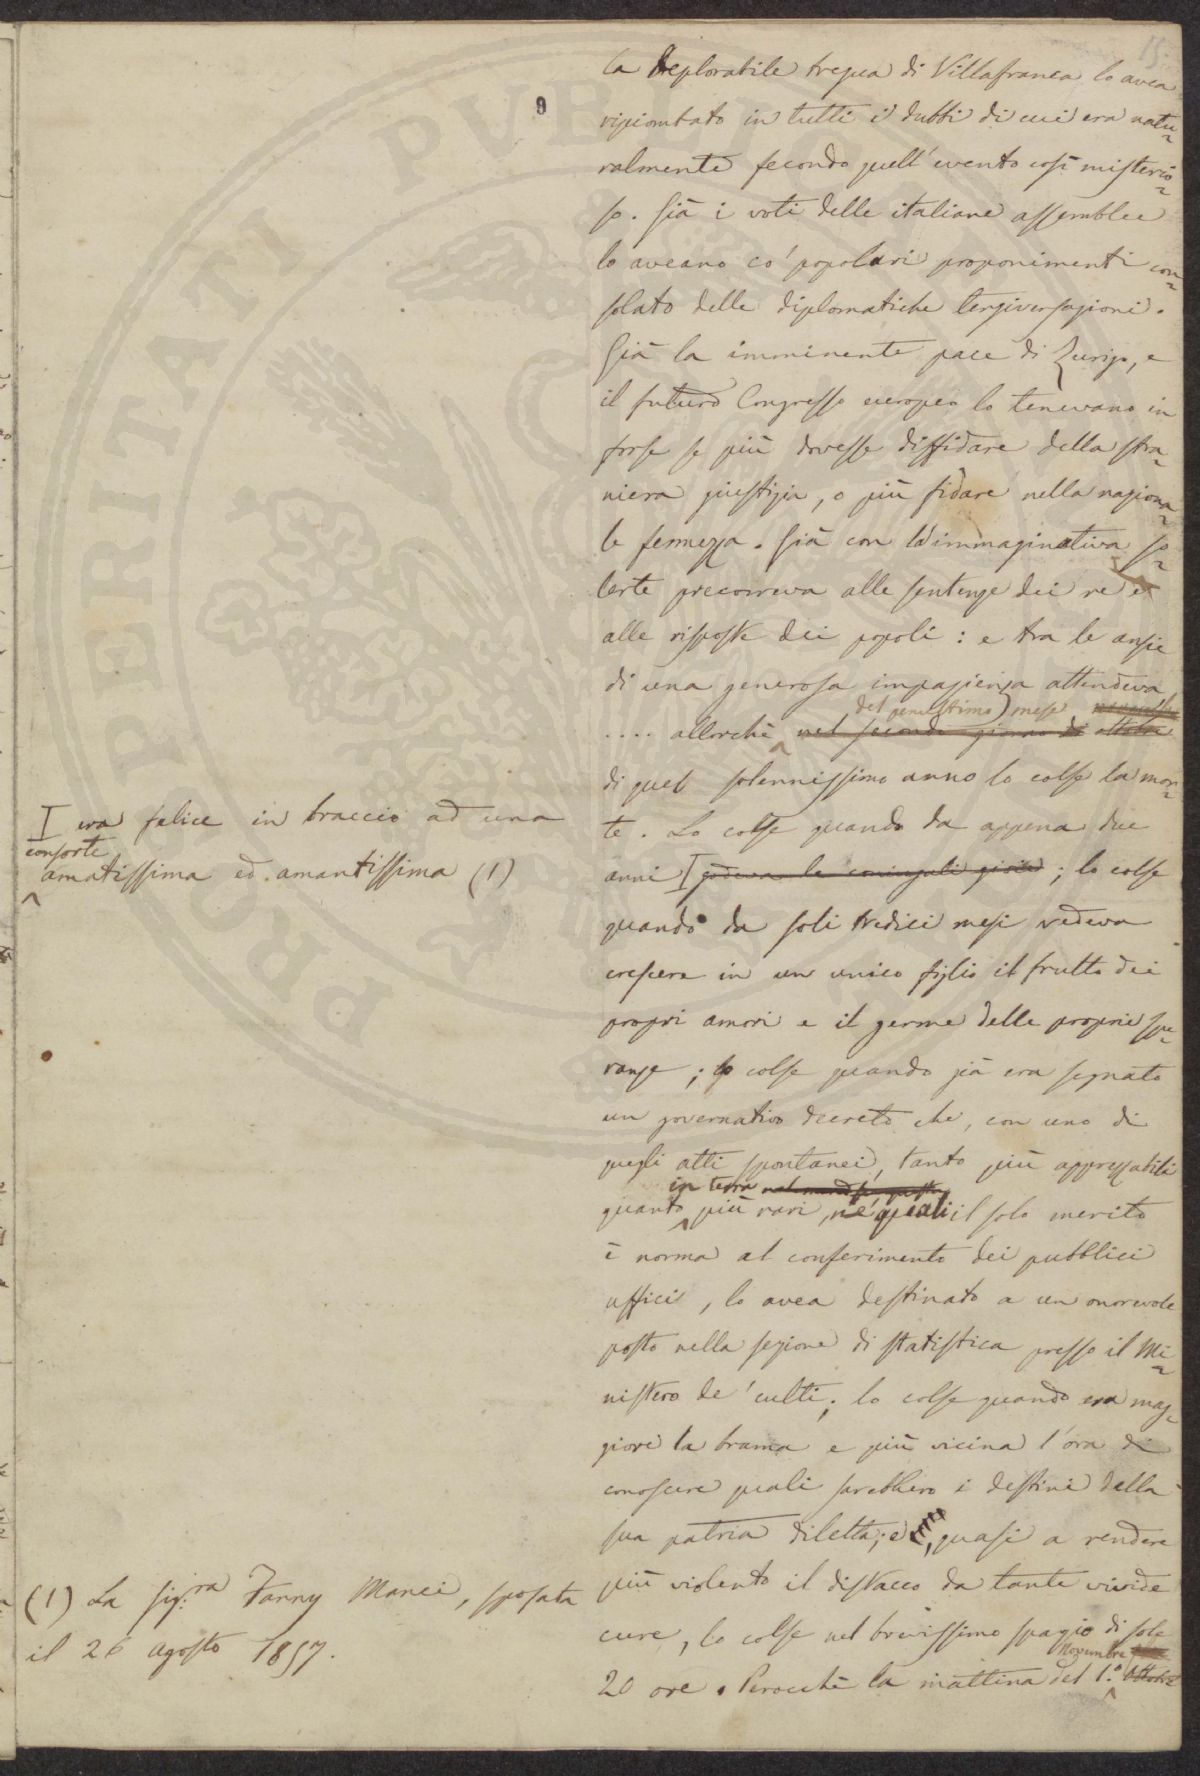 15.
9
La deplorabile tregua di Villafranca lo avea
ripiombato in tutti i dubbi di cui era natu=
ralmente fecondo quell'evento così misterio=
so. Già i voti delle italiane assemblee
lo aveano co' popolari proponimenti con=
solato delle diplomatiche tergiversazioni.
Già la imminente pace di Zurigo, e
il futuro Congresso europeo lo tenevano in
forse se più dovesse diffidare della stra=
niera giustizia, o più fidare nella naziona=
le fermezza. Già con la immaginativa so=
lerte precorreva alle sentenze dei re e
alle risposte dei popoli: e tra le ansie
di una generosa impazienza attendeva
del penultimo mese
.... allorchè nel secondo giorno di ottobre
di quel solennissimo anno lo colse la mor=
te. Lo colse quando da appena due
anni I godeva le coniugali gioie; lo colse
quando da soli tredici mesi vedeva
crescere in un unico figlio il frutto dei
propri amori e il germe delle proprie spe=
ranze; lo colse quando già era segnato
un governativo decreto che, con uno di
quegli atti spontanei, tanto più apprezzabili
in terra
quanto più rari, ne' quali il solo merito
è norma al conferimento dei pubblici
uffici, lo avea destinato a un onorevole
posto nella sezione di statistica presso il Mi=
nistero de' culti; lo colse quando era mag=
giore la brama e più vicina l'ora di
conoscere quali sarebbero i destini della
sua patria diletta; e, quasi a rendere
più violento il distacco da tante vivide
cure, lo colse nel brevissimo spazio di sole
Novembre
20 ore. Perocchè la mattina del 1.° Ottobre
I era felice in braccio ad una
consorte
amatissima ed amantissima (1)
(1) La sig.ra Fanny Manci, sposata
il 26 agosto 1857.